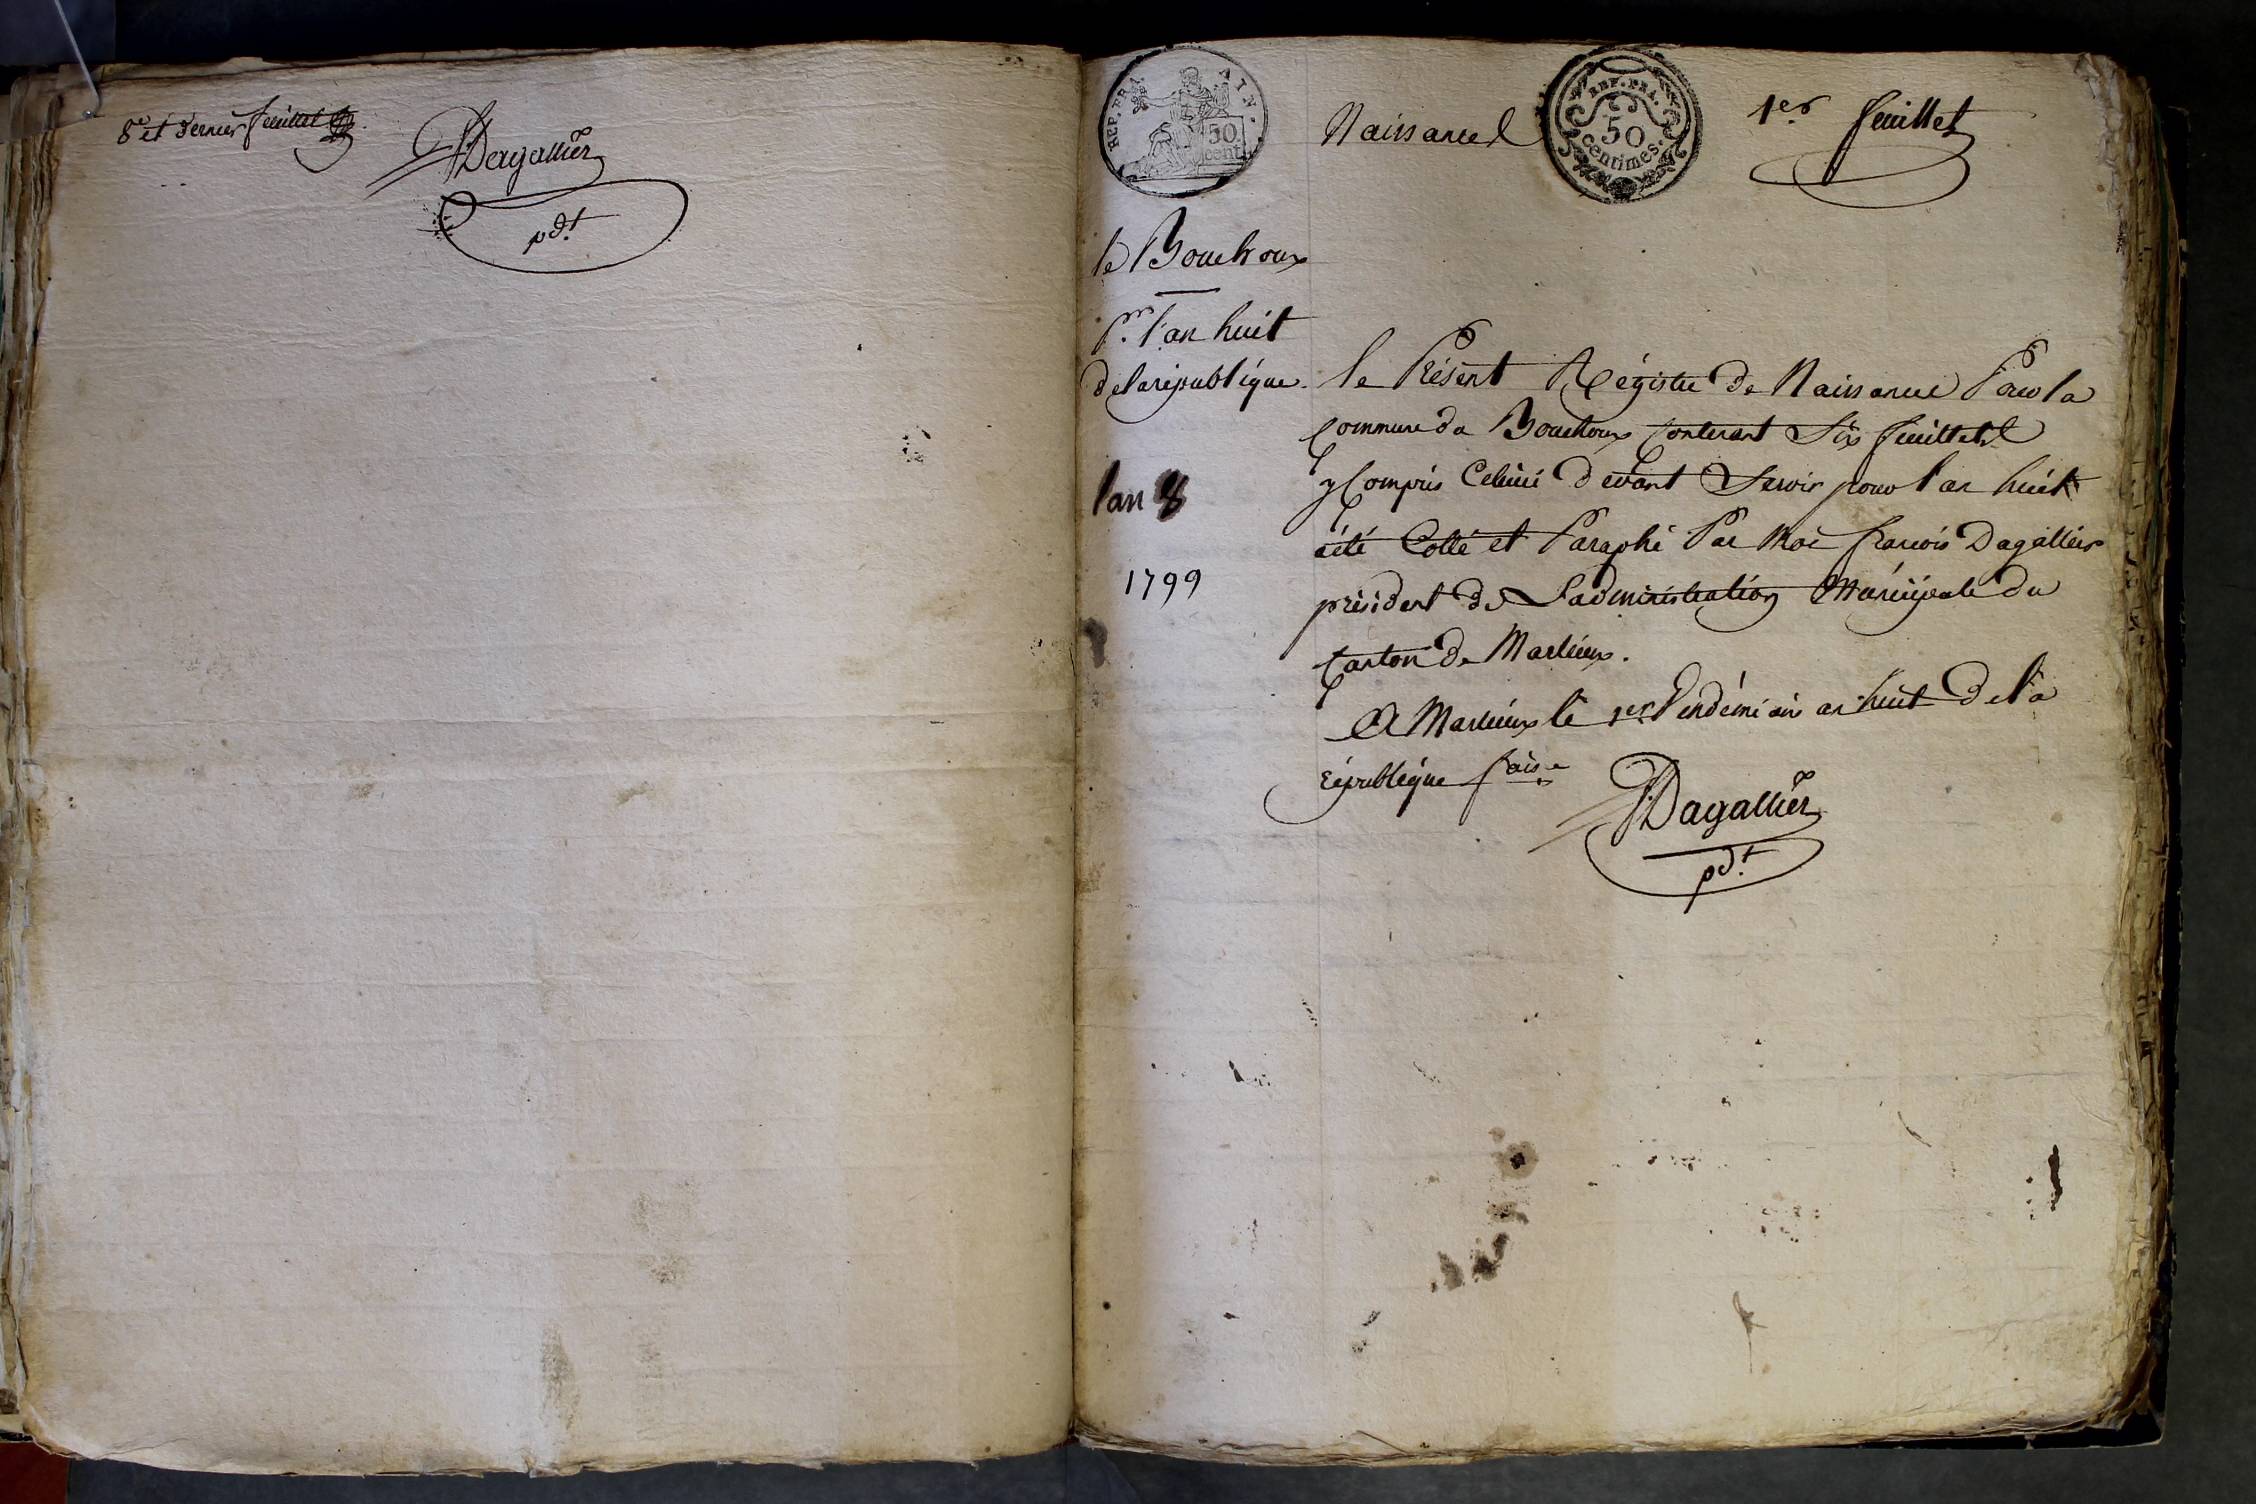 8e et dernier feuillet
Dagallier
pdt
REP. FRA. AIN.
50
cent.
Naissances
REP. FRA.
50
centimes.
1er feuillet
le Bouchoux
pr. l'an huit
de la république.
l'an 8
1799
le Présent Régistre de Naissance Pour la
Commune du Bouchoux Contenant Six feuillets
y Compris Celuici devant Servir pour l'an huit
aété Cotté et Paraphé Par Moi françois Dagallier
président de L'administration Municipale du
Canton de Marlieux.
A Marlieux le 1er Vendémiaire an huit de la
république faise
Dagallier
pdt.